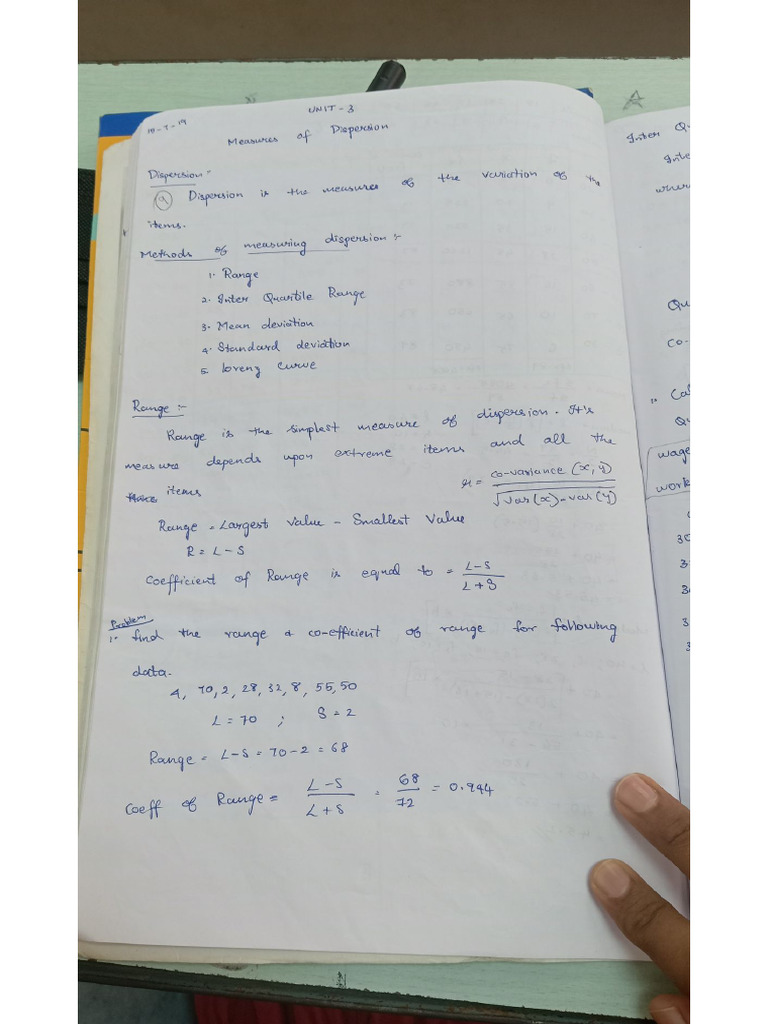 UNIT - 3
18-7-19
Measures of Dispersion
Dispersion :-
Dispersion is the measures of the variation of the
items.
Methods of measuring dispersion :-
1. Range
2. Inter Quartile Range
3. Mean deviation
4. Standard deviation
5. loreng curve
Range :-
Range is the simplest measure of dispersion. It's
measure depends upon extreme items and all the
items
r = co-variance (x, y) / √var(x) - var(y)
Range = Largest value - Smallest value
R = L - S
Coefficient of Range is equal to = L-S / L+S
Problem
1. find the range & co-efficient of range for following
data.
4, 70, 2, 28, 32, 8, 55, 50
L = 70 ; S = 2
Range = L-S = 70-2 = 68
Coeff of Range = L-S / L+S = 68 / 72 = 0.944
Inter Qu
Inte
wher
Qu
Co-
1. Cal
Qu
wage
work